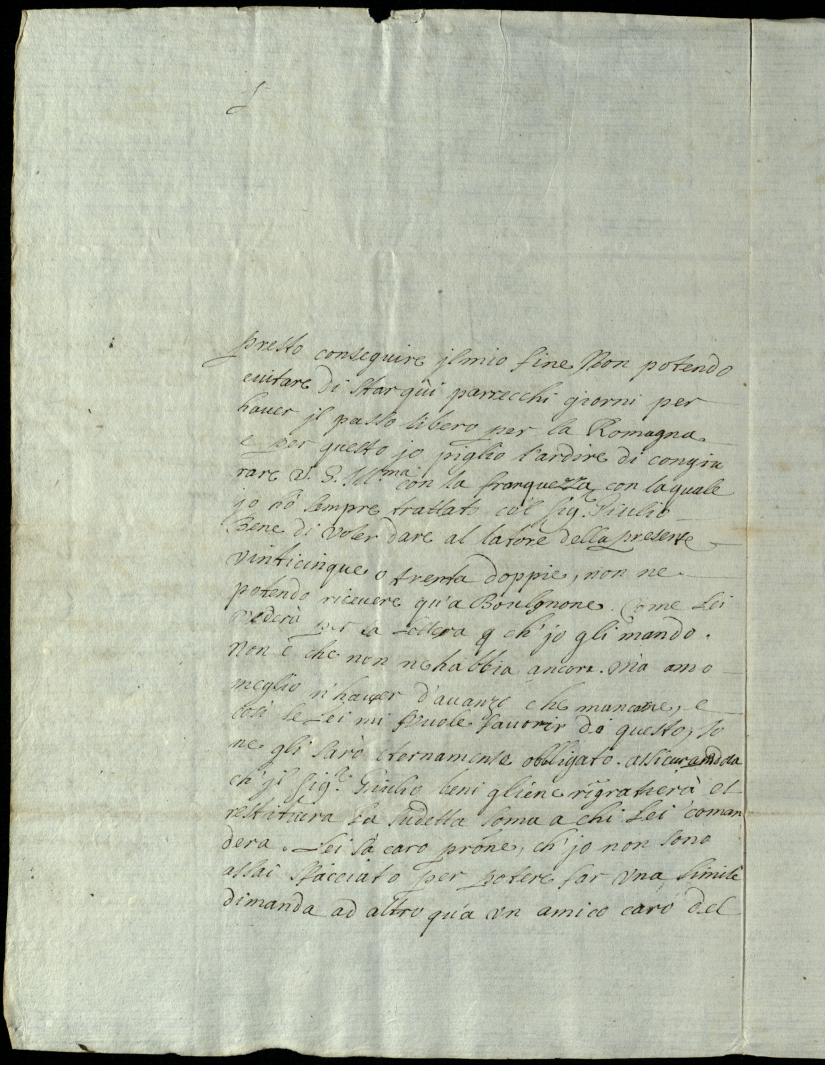 presto conseguire jl mio fine Non potendo
euitare di star qüi parrecchi giorni per
hauer jl passo libero per la Romagna
e per questo jo piglio l'ardire di congiu
rare V. S. Ill.ma con la franquezza con laquale
jo hò sempre trattato col Sig.r Giulio
Bene di voler dare al latore della presente
vinticinque o trenta doppie, non ne
potendo riceuere qu'a Boulgnone. Come Lei
vederà per la Lettera q ch'jo gli mando.
Non è che non ne habbia ancora. Mà amo
meglio n'hauer d'auanze che mancare, e
così se Lei mi vuole fauorir di questo, jo
ne gli sarò eternamente obbligato. assicurandola
ch'jl Sig.r Giulio beni gliene rigratierà et
restituira la sudetta soma a chi Lei coman
dera. Lei sà caro prone, ch'jo non sono
assai sfacciato per potere far vna simile
dimanda ad altro qu'a vn amico caro del